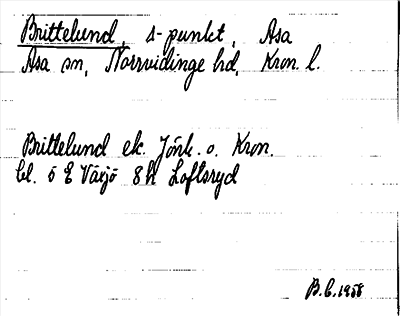 Brittelund, s-punkt, Asa
Asa sn, Norrvidinge hd, Kron. l.
Brittelund ek. Jönk. o. Kron.
bl. 5 E Växjö 8h Loftsryd
B.C. 1958